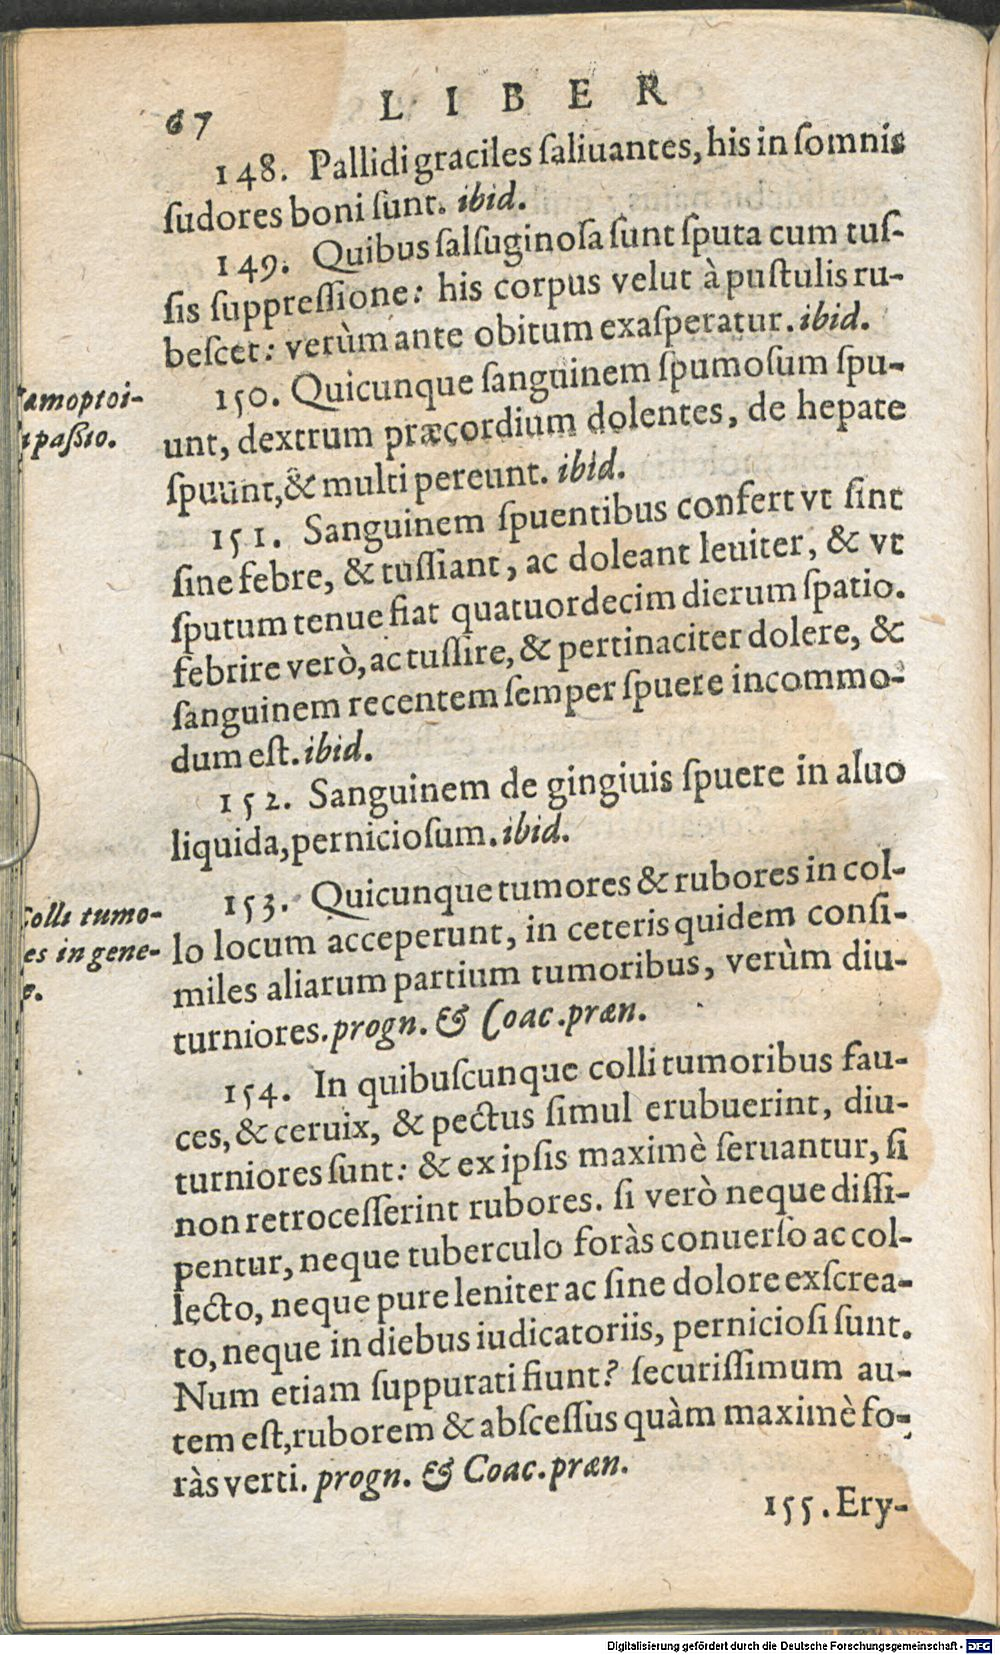 67 LIBER
148. Pallidi graciles ſaliuantes, his in ſomnis
ſudores boni ſunt. ibid.
149. Quibus ſalſuginoſa ſunt ſputa cum tuſ-
ſis ſuppreſſione: his corpus velut à puſtulis ru-
beſcet: verùm ante obitum exaſperatur. ibid.
amoptoi-
paßio.
150. Quicunque ſanguinem ſpumoſum ſpu-
unt, dextrum præcordium dolentes, de hepate
ſpuunt, & multi pereunt. ibid.
151. Sanguinem ſpuentibus confert vt ſint
ſine febre, & tuſſiant, ac doleant leuiter, & vt
ſputum tenue fiat quatuordecim dierum ſpatio.
febrire verò, ac tuſſire, & pertinaciter dolere, &
ſanguinem recentem ſemper ſpuere incommo-
dum eſt. ibid.
152. Sanguinem de gingiuis ſpuere in aluo
liquida, pernicioſum. ibid.
Colli tumo-
es in gene-
153. Quicunque tumores & rubores in col-
lo locum acceperunt, in ceteris quidem conſi-
miles aliarum partium tumoribus, verùm diu-
turniores. progn. & Coac. præn.
154. In quibuſcunque colli tumoribus fau-
ces, & ceruix, & pectus ſimul erubuerint, diu-
turniores ſunt: & ex ipſis maximè ſeruantur, ſi
non retroceſſerint rubores. ſi verò neque diſſi-
pentur, neque tuberculo foràs conuerſo ac col-
lecto, neque pure leniter ac ſine dolore exſcrea-
to, neque in diebus iudicatoriis, pernicioſi ſunt.
Num etiam ſuppurati fiunt? ſecuriſſimum au-
tem eſt, ruborem & abſceſſus quàm maximè fo-
ràs verti. progn. & Coac. præn.
155. Ery-
Digitalisierung gefördert durch die Deutsche Forschungsgemeinschaft - DFG